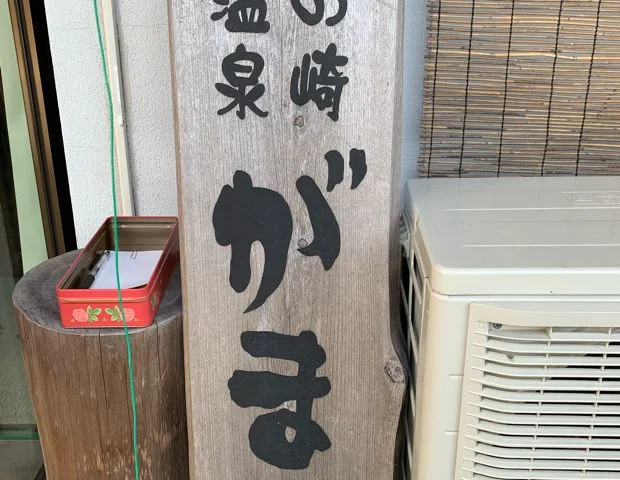 の崎
温泉
がま